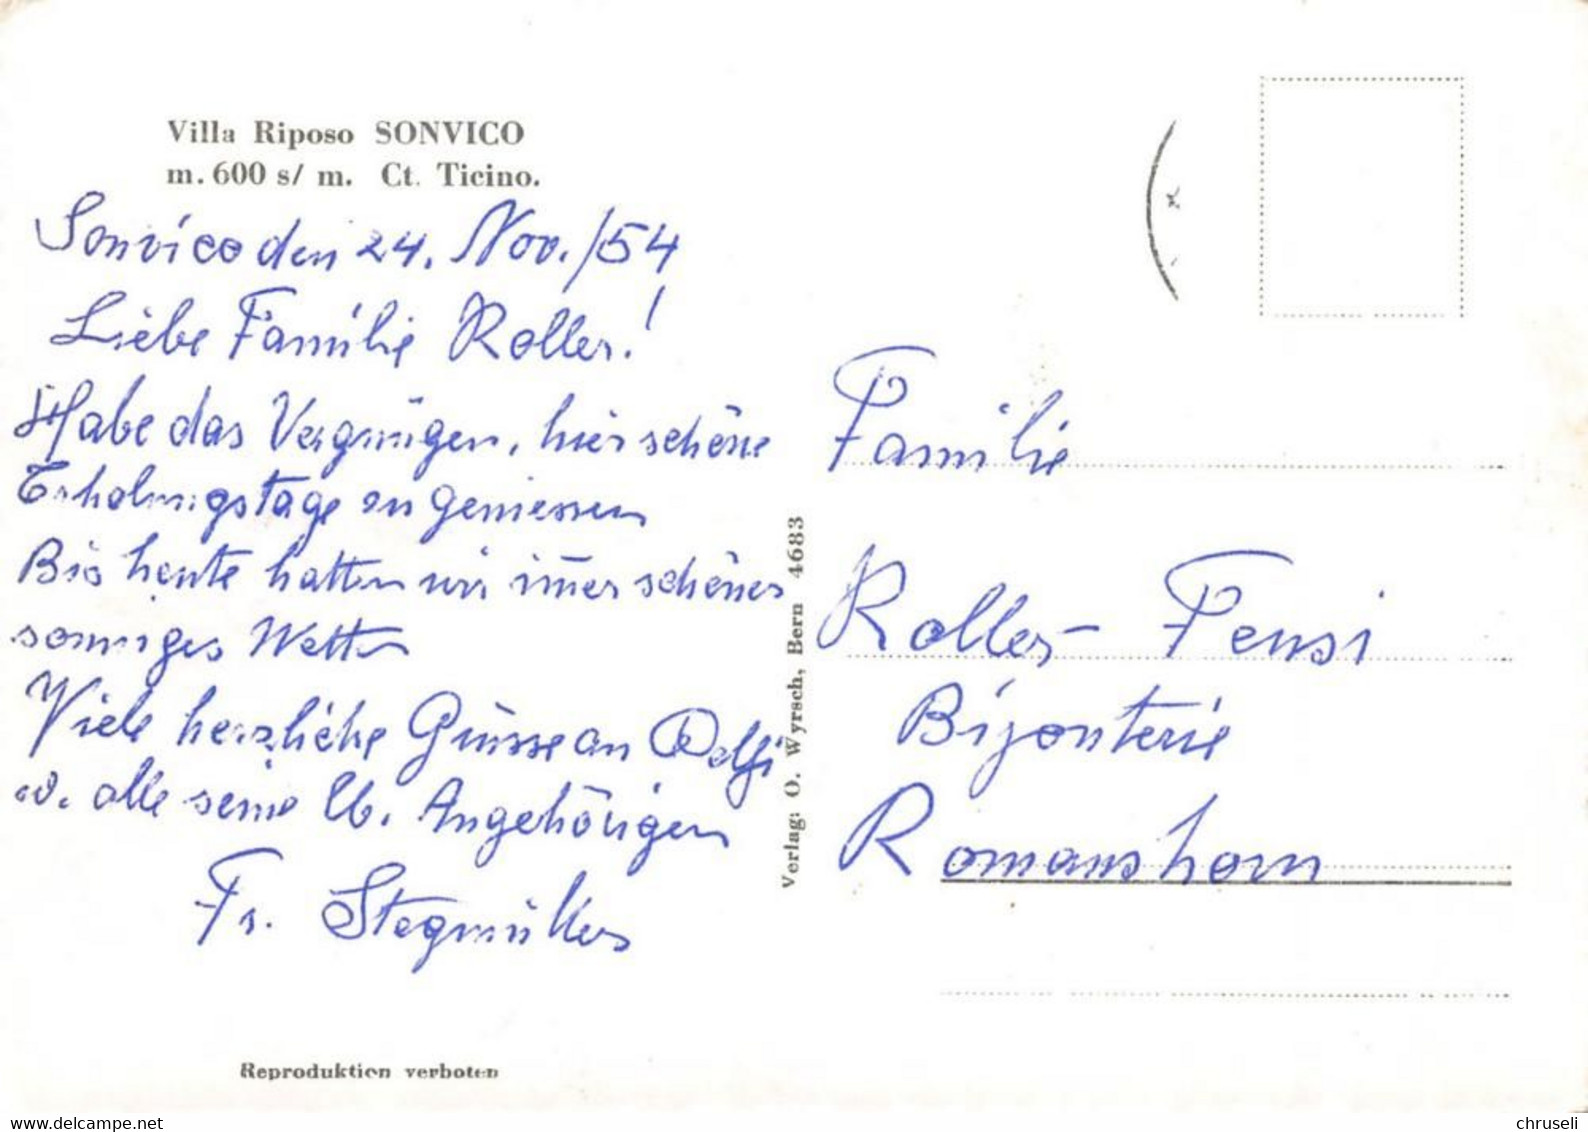 Villa Riposo SONVICO
m. 600 s/ m. Ct. Ticino.
Sonvico den 24. Nov. /54
Liebe Familie Roller!
Habe das Vergnügen, hier schöne
Erholungstage zu geniessen
Bis heute hatten wir im̅er schönes
sonniges Wetter
Viele herzliche Grüsse an
u. alle seine lb. Angehörigen
Fr. Stegmüller
Reproduktion verboten
Verlag: O. Wyrsch, Bern 4683
Familie
Roller-
Bijouterie
Romanshorn
www.delcampe.net
chruseli